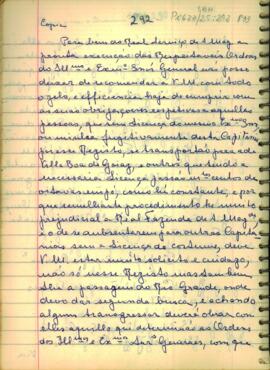 Copia
292
Para bem do Real serviço de S. Mag. e
prompta execução das Respeitaveis Ordens
do Illmo e Exmo Snr General me posso
deixar de recomendar a V.M. com todo
o zelo, e efficiencia haja de cumprir com
as mais obrigaçoens respectivas a aquellas
pessoas, que sem licença do mesmo Exmo Snr
ou minha fugitivamente desta Capitania
por esse Registo, se transportão para a de
Villa Boa de Goyaz, e outros que tendo a
necessaria licença
oitavas em pó, como he constante, e por
que semelhante procedimento he muito
prejudicial a Real Fazenda de S. Mage
e o de se ausentarem para outras Capita-
nias sem a licença do costume, deve
V.M. estar muito solicito e cuidado,
não só nesse Registo mas tambem
a passagem do Rio Grande, onde
devo dar segunda busca, e achando
algum transgressor deverá obrar com
elles aquillo que determinão as Ordens
dos Illmos e Exmos Snrs Generaes, com que